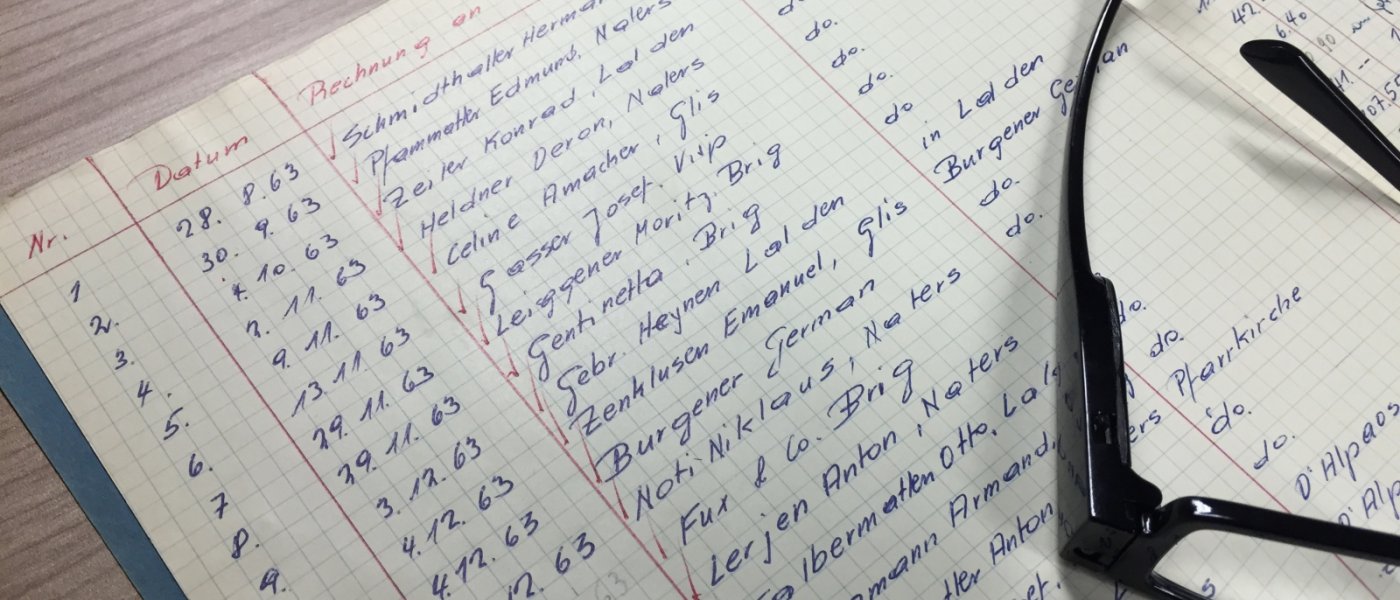 Nr. Datum Rechnung an
1 28. 8. 63 Schmidthalter Herman
2. 30. 9. 63 Pfammatter Edmund, Naters
3. 4. 10. 63 Zeiter Konrad, Lalden
4. 2. 11. 63 Heldner Deron, Naters do.
5. 9. 11. 63 Celine Amacher, Glis do.
6. 13. 11. 63 Gasser Josef. Visp do.
7 29. 11. 63 Leiggener Moritz. Brig do.
8. 29. 11. 63 Gentinetta, Brig do
9. 3. 12. 63 Gebr. Heynen Lalden in Lalden
4. 12. 63 Zenklusen Emanuel, Glis Burgener German
4. 12. 63 Burgener German do.
12. 63 Noti Niklaus, Naters do.
Fux & Co. Brig
Lerjen Anton, Naters do.
Otto, do.
Armand Pfarrkirche
Anton do.
do.
D'Alpaos